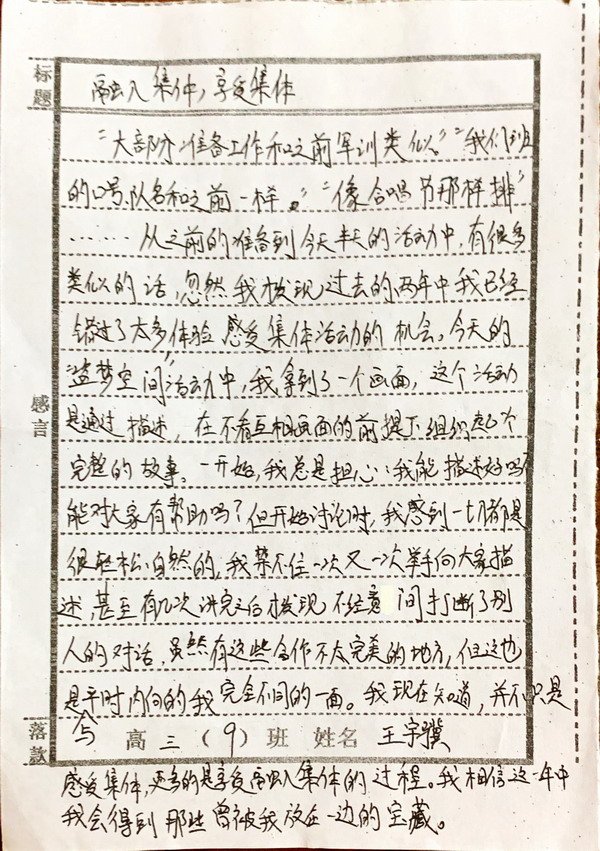 标题
融入集体，享受集体
"大部分准备工作和之前军训类似。""我们班
的口号、队名和之前一样。""像合唱节那样排"
……从之前的准备到今天半天的活动中，有很多
类似的话，忽然我发现过去的两年中我已经
错过了太多体验 感受集体活动的机会。今天的
"盗梦空间"活动中，我拿到了一个画面，这个活动
是通过描述，在不看互相画面的前提下组织起个
完整的故事。一开始，我总是担心：我能描述好吗？
能对大家有帮助吗？但开始讨论时，我感到一切都是
很轻松、自然的，我禁不住一次又一次举手向大家描
述，甚至有几次讲完之后发现不经意间打断了别
人的对话，虽然有这些合作不太完美的地方，但这也
是平时内向的我完全不同的一面。我现在知道，并不只是
与
感言
落款
高三（9）班 姓名 王宇骥
感受集体，更多的是享受融入集体的过程。我相信这一年中
我会得到那些曾被我放在一边的宝藏。